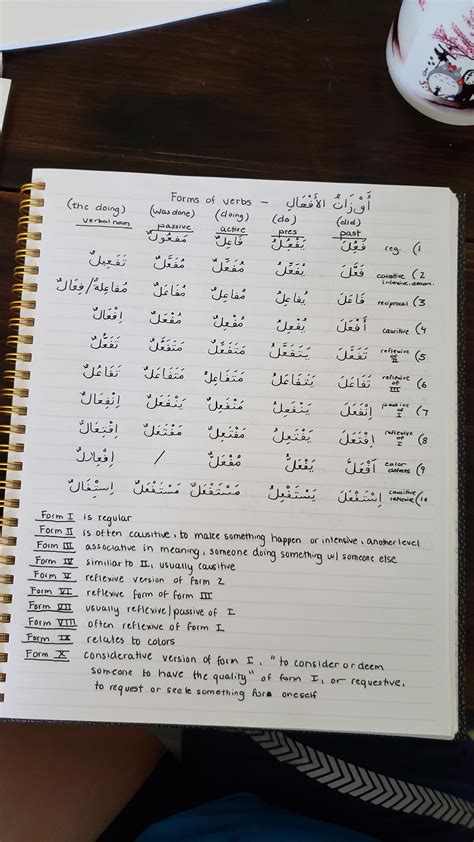 Forms of verbs – أَوْزَانُ الأَفْعَالِ
(the doing) (was done) (doing) (do) (did)
verbal noun passive active pres past
مَفْعُولٌ فَاعِلٌ يَفْعُلُ فَعُلَ reg. (1
تَفْعِيلٌ مُفَعَّلٌ مُفَعِّلٌ يُفَعِّلُ فَعَّلَ causitive intensive. (2
مُفاعِلةٌ / فِعَالٌ مُفَاعَلٌ مُفَاعِلٌ يُفاعِلُ فَاعَلَ reciprocal (3
اِفْعَالٌ مُفْعَلٌ مُفْعِلٌ يُفْعِلُ أَفْعَلَ causitive (4
تَفَعُّلٌ مَتَفَعَّلٌ مُتَفَعِّلٌ يَتَفَعَّلُ تَفَعَّلَ reflexive of II (5
تَفَاعُلٌ مُتَفَاعَلٌ مُتَفَاعِلٌ يَتَفَاعَلُ تَفَاعَلَ reflexive of III (6
اِنْفِعَالٌ مُنْفَعِلٌ يَنْفَعِلُ اِنْفَعَلَ passive of I (7
اِفْتِعَالٌ مُفْتَعَلٌ مُفْتَعِلٌ يَفْتَعِلُ اِفْتَعَلَ reflexive of I (8
/ يَفْعَلُّ color defects (9
مَسْتَفْعَلٌ مَسْتَفْعِلٌ يَسْتَفْعِلُ اِسْتَفْعَلَ causitive reflexive (10
Form I is regular
Form II is often causitive, to make something happen or intensive, another level
Form III associative in meaning, someone doing something w/ someone else
Form IV similiar to II, usually causitive
Form V reflexive version of form 2
Form VI reflexive form of form III
Form VII usually reflexive/passive of I
Form VIII often reflexive of form I
Form IX relates to colors
Form X considerative version of form I, "to consider or deem
someone to have the quality" of form I, or requestive,
to request or seek something for oneself